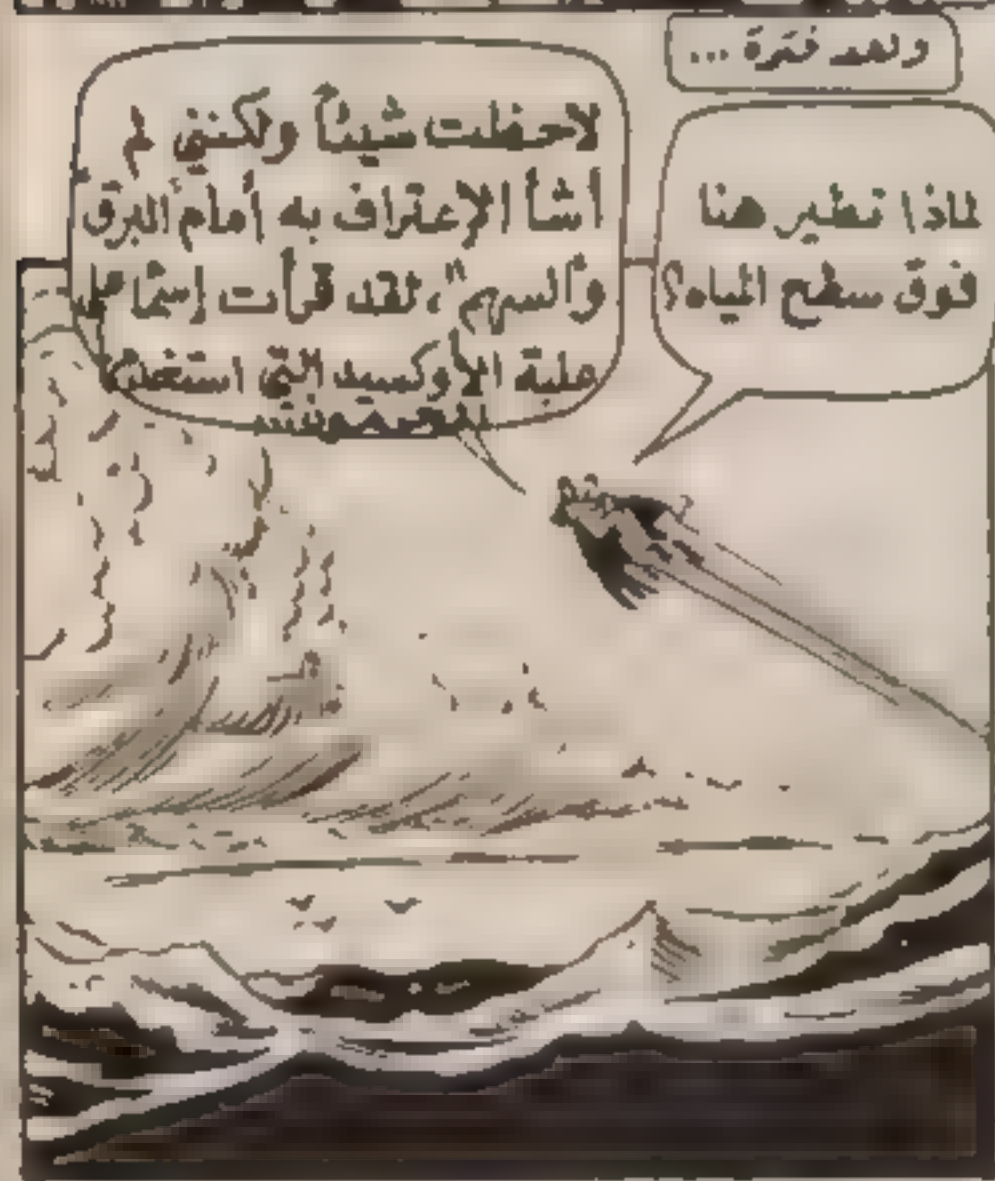 وبعد فترة ...
لماذا تطير هنا
فوق سطح المياه؟
لاحظت شيئاً ولكنني لم
أشأ الإعتراف به أمام "البرق
والسهم"، لقد قرأت إسماً على
علبة الأوكسيد التي